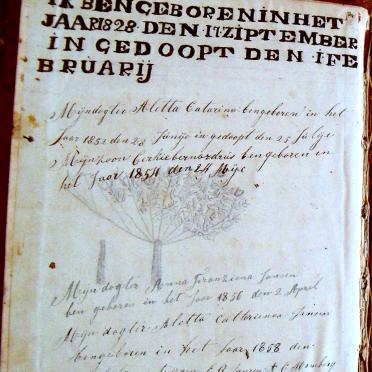 IK BEN GEBOREN IN HET
JAAR 1828 DEN 11 ZIPTEMBER
IN GEDOOPT DEN 1 FE
BRUARIJ
Mijn dogter Aletta Catarina ben geboren in het
Jaar 1852 den 28 Junij in gedoopt den 25 Julije
Mijn zoon bernardus ben geboren in
het Jaar 1854 den 24 Mije
Mijn dogter Anna Fransiena Jansen
ben geboren in het Jaar 1856 den 2 April
Mijn dogter Aletta Catharina Jansen
ben geboren in het Jaar 1858 den